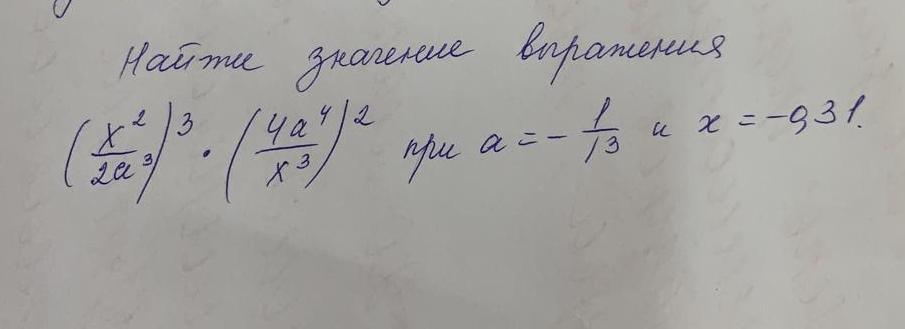 Найти значение выражения
(x²/2a³)³ · (4a⁴/x³)² при a = -1/13 и x = -0,31.